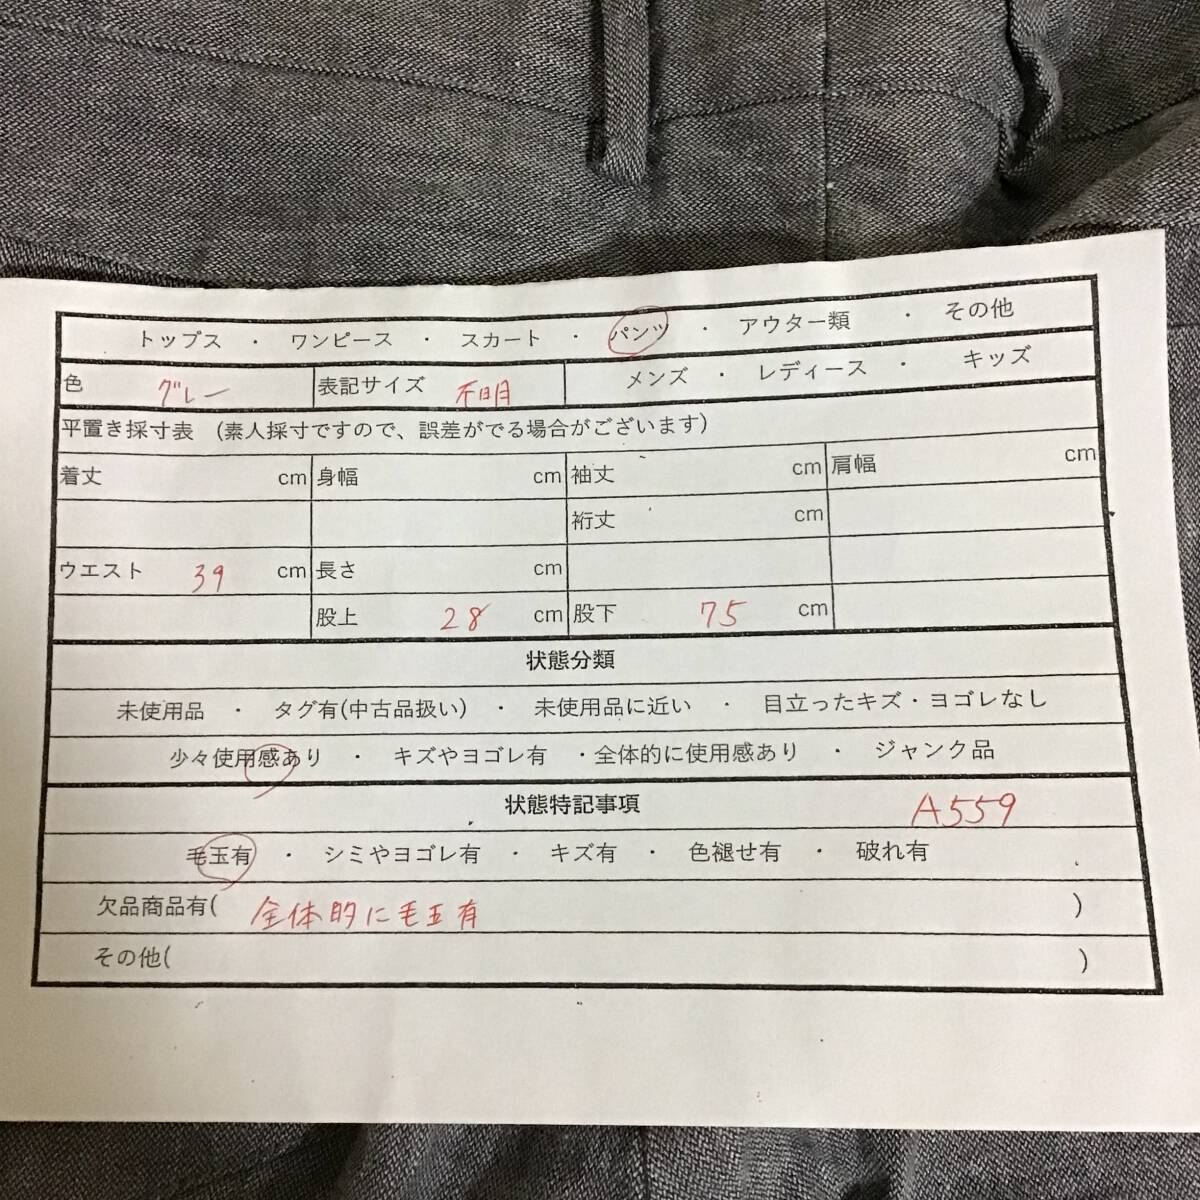 トップス ・ ワンピース ・ スカート ・ パンツ ・ アウター類 ・ その他
色 グレー 表記サイズ 不明 メンズ ・ レディース ・ キッズ
平置き採寸表 (素人採寸ですので、誤差がでる場合がございます)
着丈 cm 身幅 cm 袖丈 cm 肩幅 cm
裄丈 cm
ウエスト 39 cm 長さ cm
股上 28 cm 股下 75 cm
状態分類
未使用品 ・ タグ有(中古品扱い) ・ 未使用品に近い ・ 目立ったキズ・ヨゴレなし
少々使用感あり ・ キズやヨゴレ有 ・全体的に使用感あり ・ ジャンク品
状態特記事項 A559
毛玉有 ・ シミやヨゴレ有 ・ キズ有 ・ 色褪せ有 ・ 破れ有
欠品商品有( 全体的に毛玉有 )
その他( )